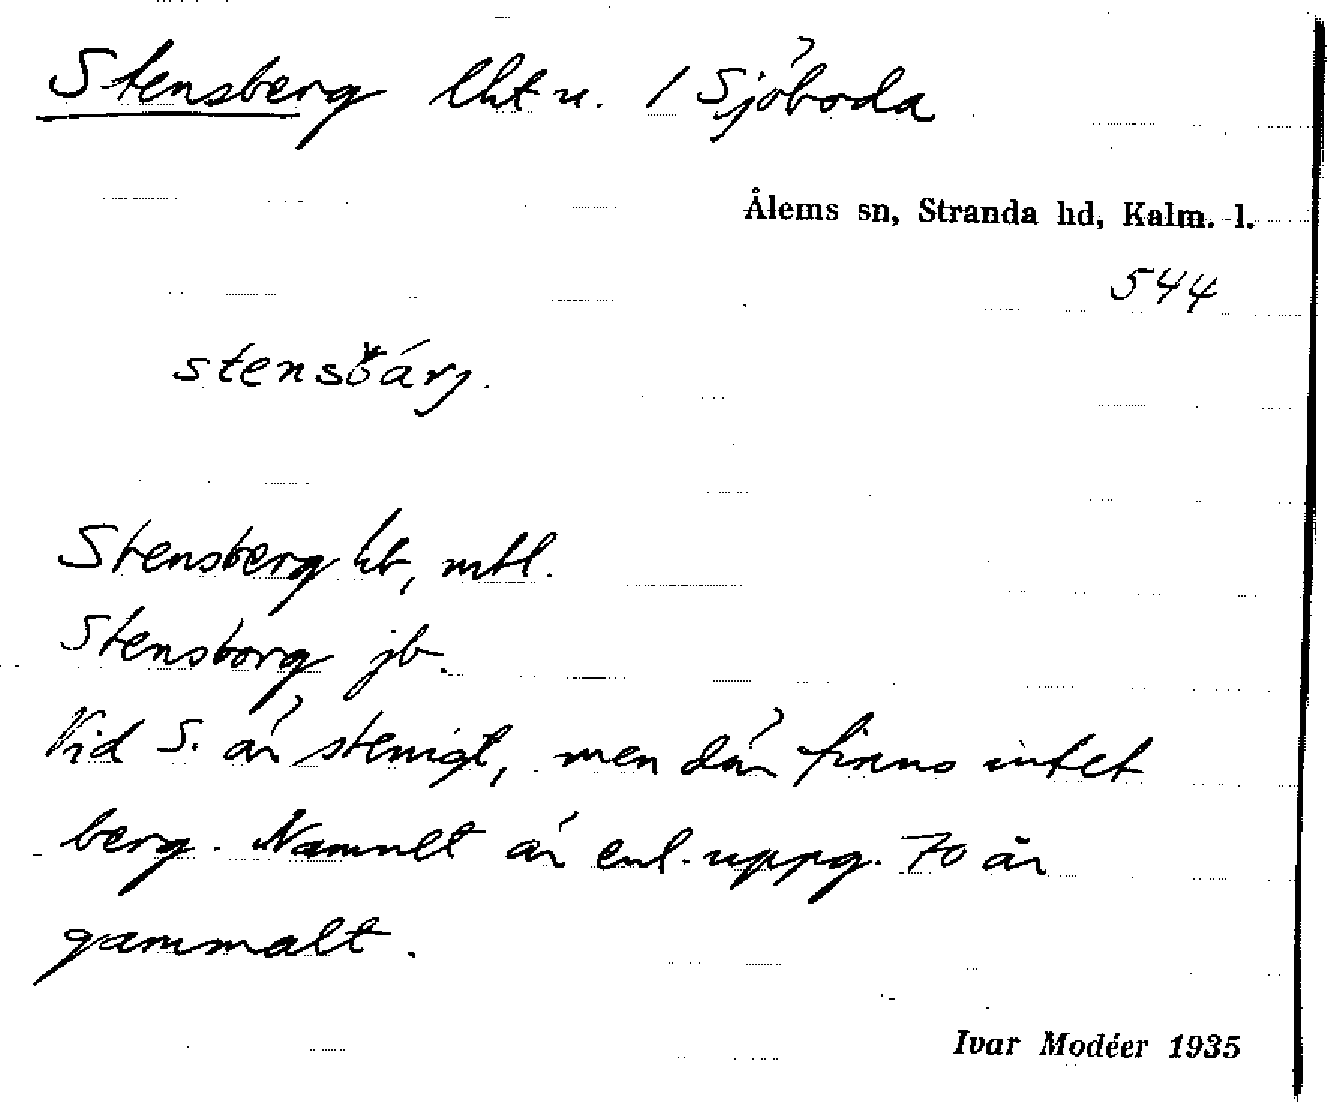 Stensberg lht u. 1 Sjöboda
Ålems sn, Stranda hd, Kalm. l.
544
stensbárj.
Stensberg hb, mtl.
Stensborg jb.
Vid S. är stenigt, men där finns intet
berg. Namnet är enl. uppg. 70 år
gammalt.
Ivar Modéer 1935